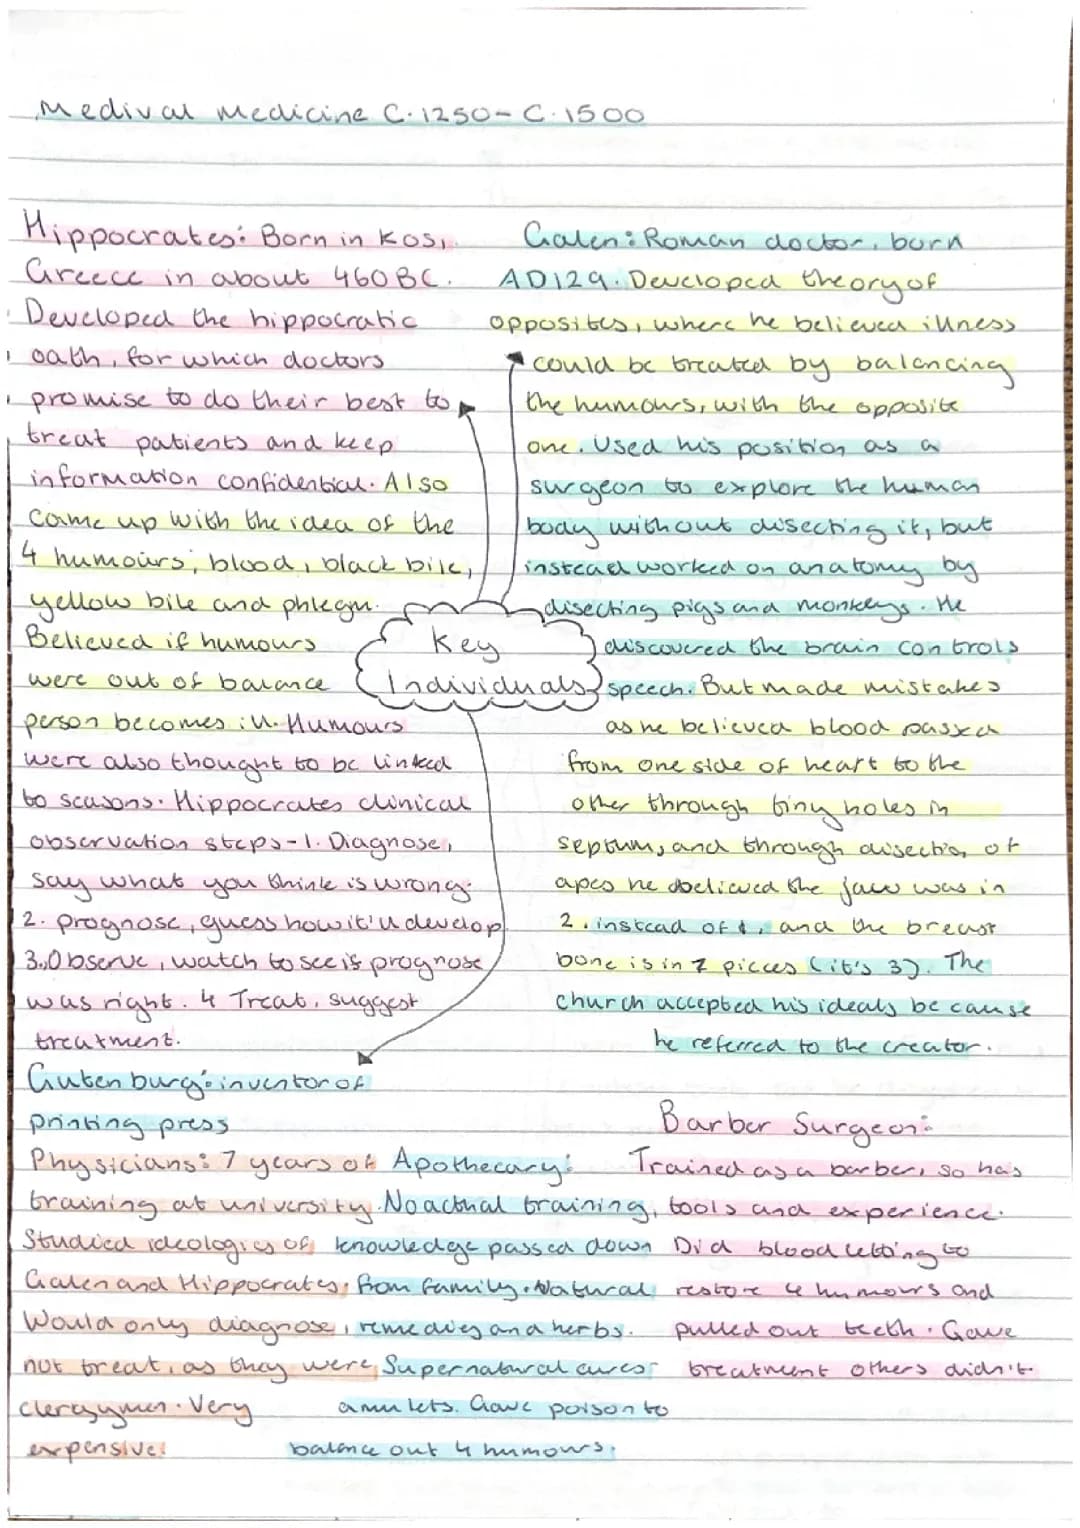 Medival Medicine C.1250- C.1500
Hippocrates: Born in Kos,
Greece in about 460BC.
Developed the hippocratic
oath, for which doctors
promise to do their best to
treat patients and keep
information confidential. Also
came up with the idea of the
4 humours; blood, black bile,
yellow bile and phlegm.
Believed if humours
were out of balance
person becomes ill. Humours
were also thought to be linked
to seasons. Hippocrates clinical
observation steps-1. Diagnose,
say what you think is wrong.
2. prognose, guess how it'll develop
3. Observe, watch to see if prognose
was right. 4 Treat, suggest
treatment.
Galen: Roman doctor, born
AD129. Developed theory of
opposites, where he believed illness
could be treated by balancing
the humours, with the opposite
one. Used his position as a
surgeon to explore the human
body without disecting it, but
instead worked on anatomy by
disecting pigs and monkeys. He
discovered the brain controls
speech. But made mistakes
as he believed blood passed
from one side of heart to the
other through tiny holes in
septum, and through disection of
apes he believed the jaw was in
2. instead of 1, and the breast
bone is in 7 pieces (it's 3). The
church accepted his ideals because
he referred to the creator.
Key
Individuals
Gutenburg: inventor of
printing press
Physicians: 7 years of
training at university.
Studied ideologies of
Galen and Hippocrates.
Would only diagnose,
not treat, as they were
clergymen. Very
expensive!
Apothecary:
No actual training,
knowledge passed down
from family. Natural
remedies and herbs.
Supernatural cures-
amulets. Gave poison to
balance out 4 humours.
Barber Surgeon:
Trained as a barber, so has
tools and experience.
Did bloodletting to
restore 4 humours and
pulled out teeth. Gave
treatment others didn't.